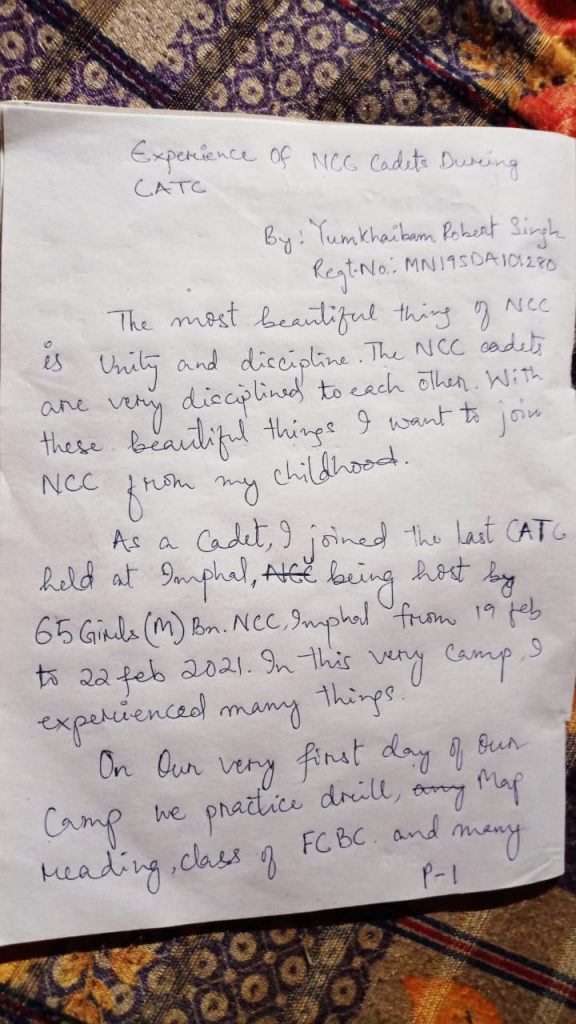 Experience Of NCC Cadets During
CATC
By: Yumkhaibam Robert Singh
Regt.No.: MN19SDA101280
The most beautiful thing of NCC
is Unity and discipline. The NCC cadets
are very disciplined to each other. With
these beautiful things I want to join
NCC from my childhood.
As a Cadet, I joined the last CATC
held at Imphal, NCC being host by
65 Girls (M) Bn. NCC, Imphal from 19 feb
to 22 feb 2021. In this very camp, I
experienced many things.
On Our very first day of our
Camp we practice drill, any Map
reading, class of FCBC. and many
P-1